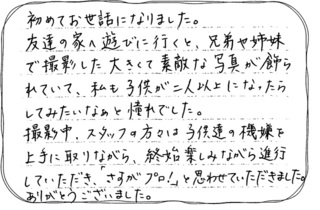 初めてお世話になりました。
友達の家へ遊びに行くと、兄弟や姉妹
で撮影した大きくて素敵な写真が飾ら
れていて、私も子供が二人以上になったら
してみたいなぁと憧れでした。
撮影中、スタッフの方々は子供達の機嫌を
上手に取りながら、終始楽しみながら進行
していただき、「さすがプロ!」と思わせていただきました。
ありがとうございました。